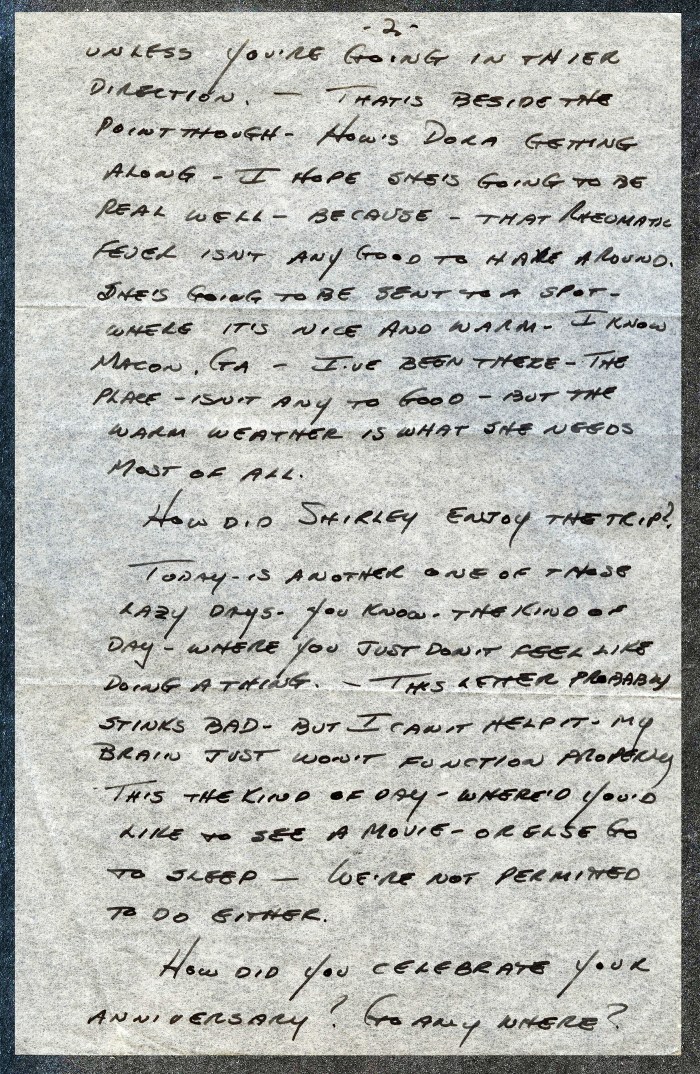 - 2 -
UNLESS YOU'RE GOING IN THIER
DIRECTION. — THAT'S BESIDE THE
POINT THOUGH - HOW'S DORA GETTING
ALONG - I HOPE SHE'S GOING TO BE
REAL WELL - BECAUSE - THAT RHEUMATIC
FEVER ISN'T ANY GOOD TO HAVE AROUND.
SHE'S GOING TO BE SENT TO A SPOT -
WHERE IT'S NICE AND WARM - I KNOW
MACON, GA - I'VE BEEN THERE - THE
PLACE - ISN'T ANY TO GOOD - BUT THE
WARM WEATHER IS WHAT SHE NEEDS
MOST OF ALL.
HOW DID SHIRLEY ENJOY THE TRIP?
TODAY - IS ANOTHER ONE OF THOSE
LAZY DAYS - YOU KNOW - THE KIND OF
DAY - WHERE YOU JUST DON'T FEEL LIKE
DOING A THING. - THIS LETTER PROBABLY
STINKS BAD - BUT I CAN'T HELP IT - MY
BRAIN JUST WON'T FUNCTION PROPERLY
THIS THE KIND OF DAY - WHERE'D YOU'D
LIKE TO SEE A MOVIE - OR ELSE GO
TO SLEEP — WE'RE NOT PERMITTED
TO DO EITHER.
HOW DID YOU CELEBRATE YOUR
ANNIVERSARY? GO ANY WHERE?